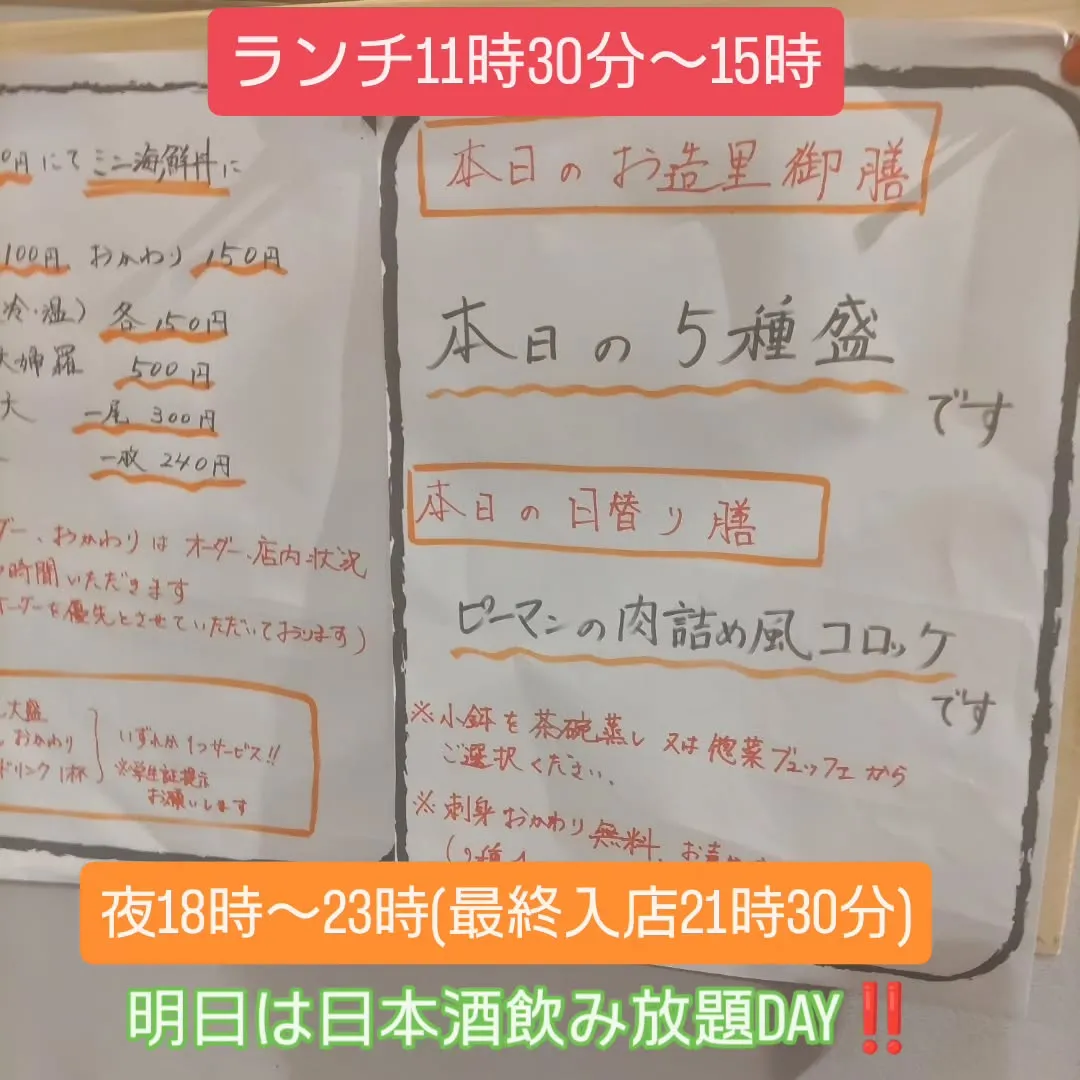 ランチ11時30分～15時
0円にて ミニ海鮮丼に
100円 おかわり 150円
(冷・温) 各150円
天婦羅 500円
一尾 300円
一枚 240円
ダー、おかわりは オーダー、店内状況
時間いただきます
オーダーを優先とさせていただいております)
大盛
おかわり
ドリンク1杯
いずれか1つサービス!!
※学生証提示
お願いします
本日のお造里御膳
本日の5種盛
です
本日の日替り膳
ピーマンの肉詰め風コロッケ
です
※小鉢を茶碗蒸し又は惣菜ブュッフェから
ご選択ください.
※刺身おかわり無料、
夜18時～23時(最終入店21時30分)
明日は日本酒飲み放題DAY‼